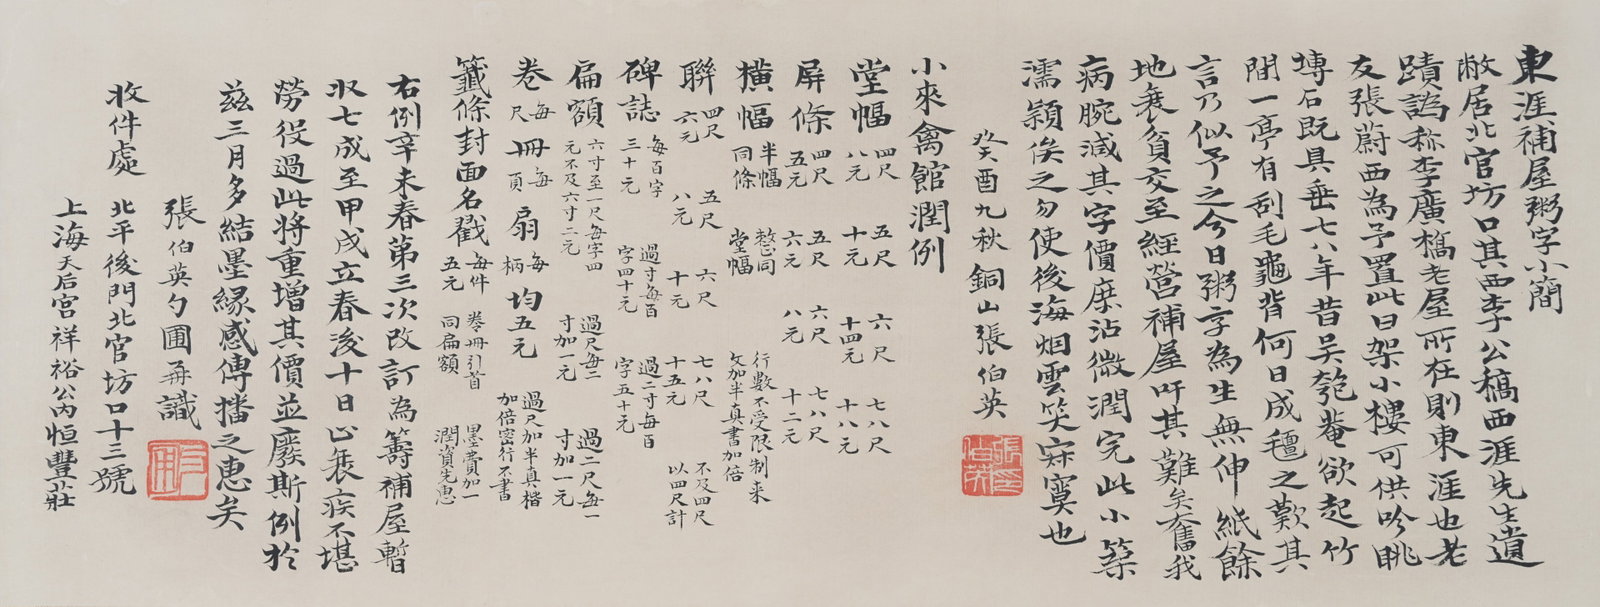 東涯補屋粥字小簡
敝居北官坊口其西李公橋西涯先生遺
蹟譌称李廣橋老屋所在則東涯也老
友張蔚西為予置此曰架小樓可供吟眺
塼石既具垂七八年昔吴匏菴欲起竹
閒一亭有刮毛龜背何日成氊之歎其
言乃似予之今日粥字為生無伸紙餘
地衰貧交至經營補屋吁其難矣奮我
病腕減其字價庶沾微潤完此小築
濡穎俟之勿使後海烟雲笑寂寞也
癸酉九秋 銅山張伯英
小來禽館潤例
堂幅 四尺八元 五尺十元 六尺十四元 七八尺十八元
屏條 四尺五元 五尺六元 六尺八元 七八尺十二元
橫幅 半幅同條 整同堂幅 行數不受限制来文加半真書加倍
聯 四尺六元 五尺八元 六尺十元 七八尺十五元 不及四尺以四尺計
碑誌 每百字三十元 過寸每百字四十元 過二寸每百字五十元
扁額 六寸至一尺每字四元不及六寸二元 過尺每二寸加一元 過二尺每一寸加一元
卷每尺 冊每頁 扇每柄 均五元 過尺加半真楷加倍密行不書
籤條封面名戳 每件五元 卷冊引首同扁額 墨費加一潤資先惠
右例辛未春第三次改訂為籌補屋暫
収七成至甲戌立春後十日止衰疾不堪
勞役過此將重增其價並廢斯例於
茲三月多結墨緣感傳播之惠矣
張伯英勺圃再識
收件處 北平後門北官坊口十三號
上海天后宫祥裕公内恒豐莊